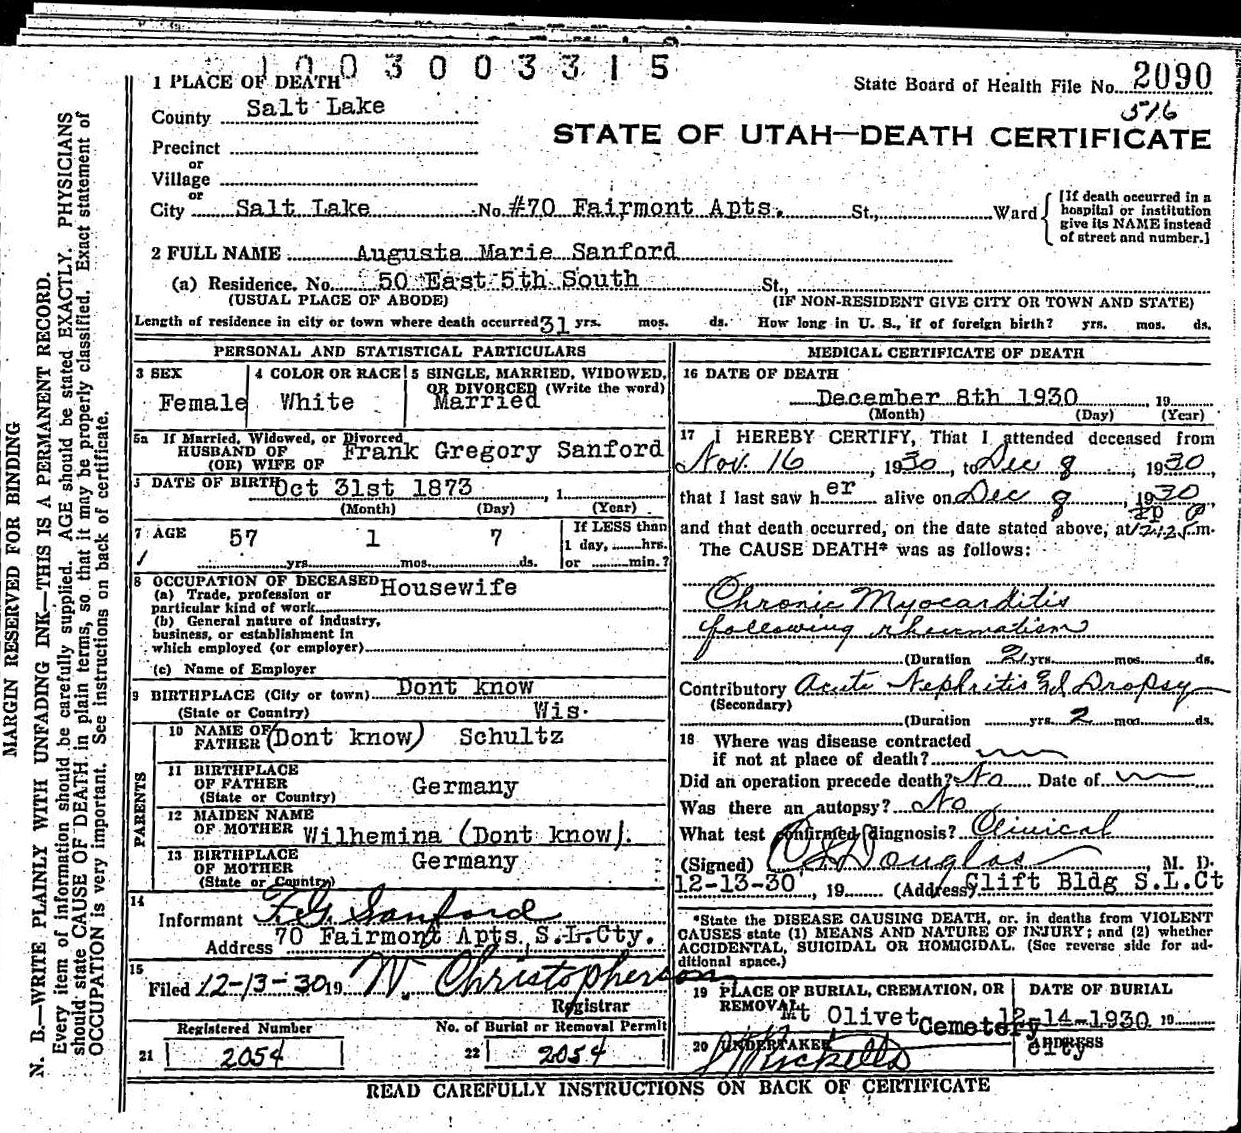 1003003315
State Board of Health File No. 2090
516
STATE OF UTAH—DEATH CERTIFICATE
1 PLACE OF DEATH
County Salt Lake
Precinct
or
Village
or
City Salt Lake No. #70 Fairmont Apts. St., Ward
[If death occurred in a
hospital or institution
give its NAME instead
of street and number.]
2 FULL NAME Augusta Marie Sanford
(a) Residence. No. 50 East 5th South St.,
(USUAL PLACE OF ABODE) (IF NON-RESIDENT GIVE CITY OR TOWN AND STATE)
Length of residence in city or town where death occurred 31 yrs. mos. ds. How long in U. S., if of foreign birth? yrs. mos. ds.
PERSONAL AND STATISTICAL PARTICULARS
3 SEX
Female
4 COLOR OR RACE
White
5 SINGLE, MARRIED, WIDOWED,
OR DIVORCED (Write the word)
Married
5a If Married, Widowed, or Divorced
HUSBAND OF
(OR) WIFE OF Frank Gregory Sanford
DATE OF BIRTH Oct 31st 1873 , 1
(Month) (Day) (Year)
7 AGE 57 1 7
yrs. mos. ds.
If LESS than
1 day, hrs.
or min.?
8 OCCUPATION OF DECEASED Housewife
(a) Trade, profession or
particular kind of work
(b) General nature of industry,
business, or establishment in
which employed (or employer)
(c) Name of Employer
9 BIRTHPLACE (City or town) Dont know
(State or Country) Wis.
PARENTS
10 NAME OF
FATHER (Dont know) Schultz
11 BIRTHPLACE
OF FATHER
(State or Country) Germany
12 MAIDEN NAME
OF MOTHER Wilhemina (Dont know).
13 BIRTHPLACE
OF MOTHER
(State or Country) Germany
14
Informant F.G. Sanford
Address 70 Fairmont Apts. S.L.Cty.
15
Filed 12-13-30 19 W. Christopherson
Registrar
Registered Number
21 2054
No. of Burial or Removal Permit
22 2054
MEDICAL CERTIFICATE OF DEATH
16 DATE OF DEATH
December 8th 1930 , 19
(Month) (Day) (Year)
17 I HEREBY CERTIFY, That I attended deceased from
Nov. 16 , 1930, to Dec 8 , 1930,
that I last saw her alive on Dec 8 , 1930
and that death occurred, on the date stated above, at m.
The CAUSE DEATH* was as follows:
Chronic Myocarditis
following rheumatism
(Duration 2 yrs. mos. ds.
Contributory Acute Nephritis Dropsy
(Secondary)
(Duration yrs. 2 mos. ds.
18 Where was disease contracted
if not at place of death?
Did an operation precede death? No Date of
Was there an autopsy? No
What test confirmed diagnosis? Clinical
(Signed) Douglas , M. D.
12-13-30 , 19 (Address) Clift Bldg S.L.Ct
*State the DISEASE CAUSING DEATH, or. in deaths from VIOLENT
CAUSES state (1) MEANS AND NATURE OF INJURY; and (2) whether
ACCIDENTAL, SUICIDAL OR HOMICIDAL. (See reverse side for ad-
ditional space.)
19 PLACE OF BURIAL, CREMATION, OR
REMOVAL Mt Olivet Cemetery
DATE OF BURIAL
12-14-1930 19
20 UNDERTAKER
ADDRESS
city
READ CAREFULLY INSTRUCTIONS ON BACK OF CERTIFICATE
MARGIN RESERVED FOR BINDING
N. B.—WRITE PLAINLY WITH UNFADING INK—THIS IS A PERMANENT RECORD.
Every item of information should be carefully supplied. AGE should be stated EXACTLY. PHYSICIANS
should state CAUSE OF DEATH in plain terms, so that it may be properly classified. Exact statement of
OCCUPATION is very important. See instructions on back of certificate.